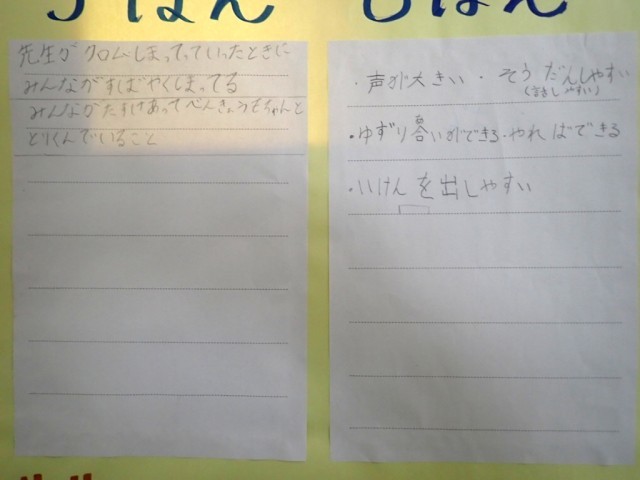 はん
はん
先生がクロムしまってっていったときに
みんながすばやくしまってる
みんながたすけあってべんきょうをちゃんと
とりくんでいること
・声が大きい・そうだんしやすい
(話しやすい)
・ゆずり合いができる・やればできる
・いけんを出しやすい